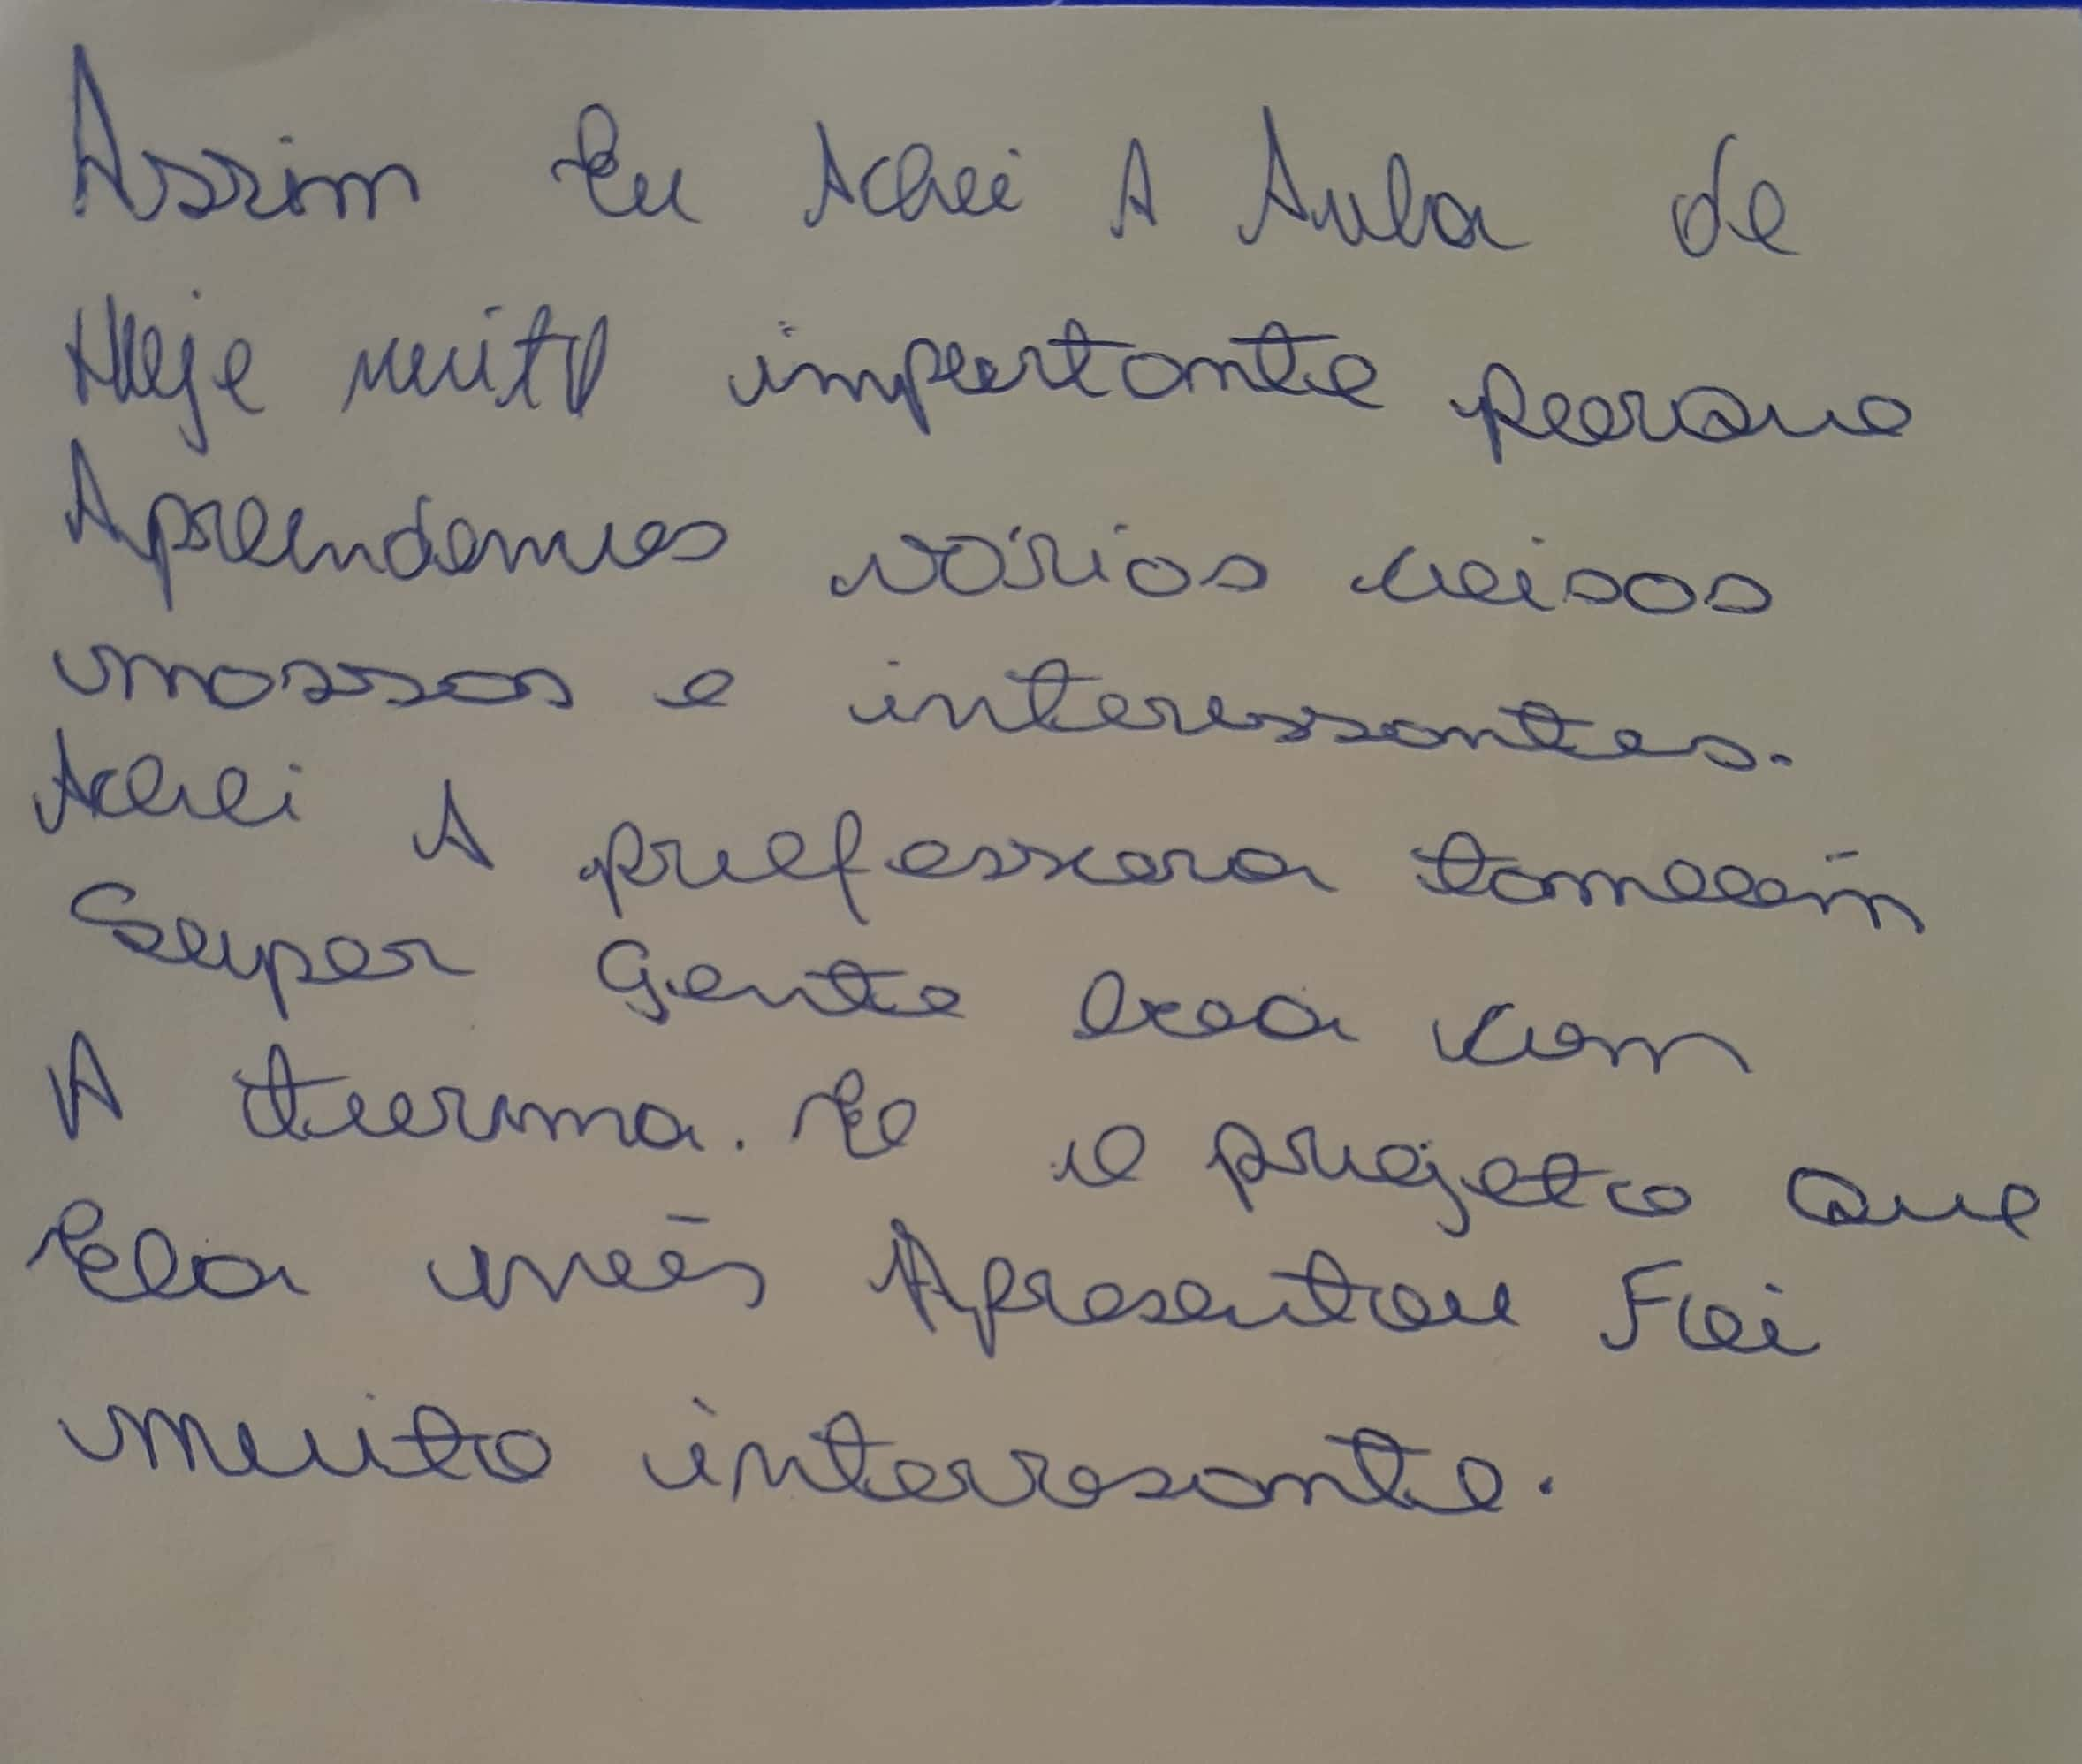 Assim Eu Achei A Aula de
Hoje muito importante porque
Aprendemos várias coisas
nossas e interessantes.
Achei A professora também
Super Gente boa com
A turma. E o projeto que
Ela nós Apresentou Foi
muito interresante.